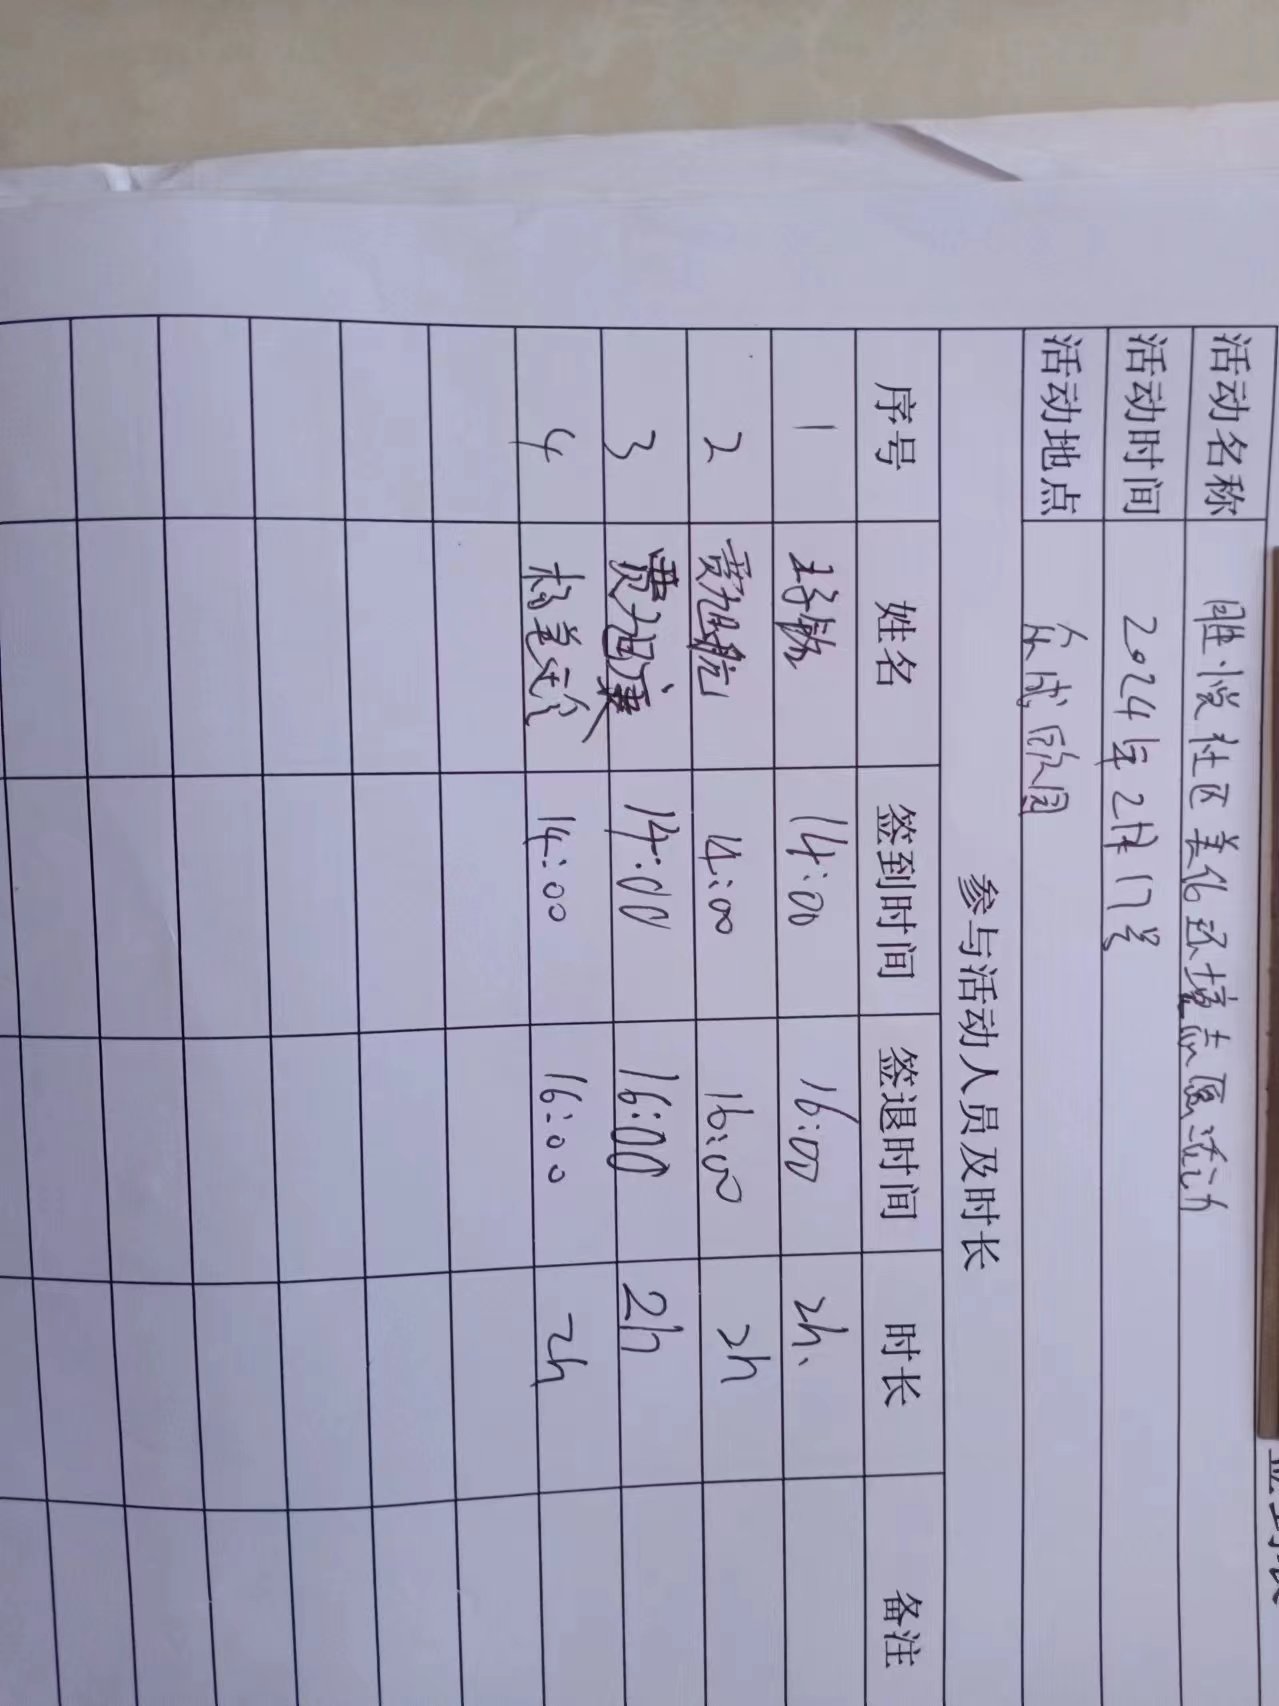 签到表
活动名称 胜悦社区美化环境志愿活动
活动时间 2024年2月17号
活动地点 众成欧园
参与活动人员及时长
序号 姓名 签到时间 签退时间 时长 备注
1 14:00 16:00 2h.
2 贾旭航 14:00 16:00 2h
3 贾旭康 14:00 16:00 2h
4 14:00 16:00 2h